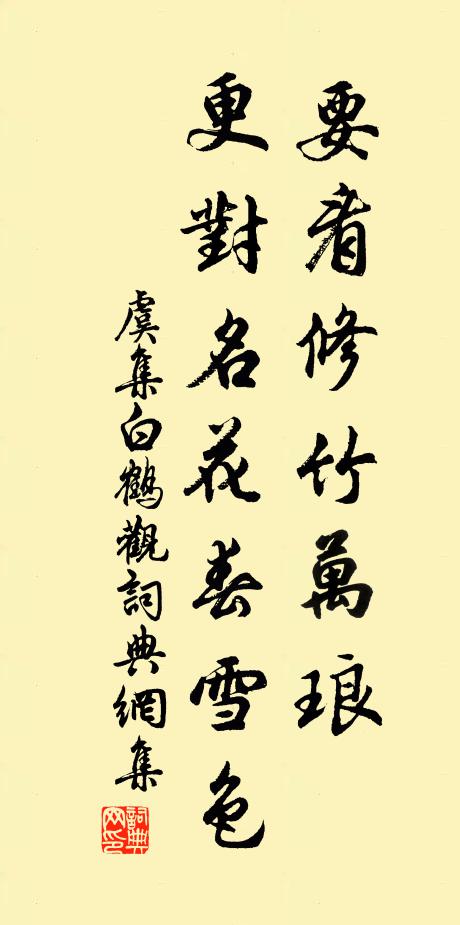 要看修竹萬琅
更對名花春雪色
虞集白鶴觀詞典網集
詞典
网印